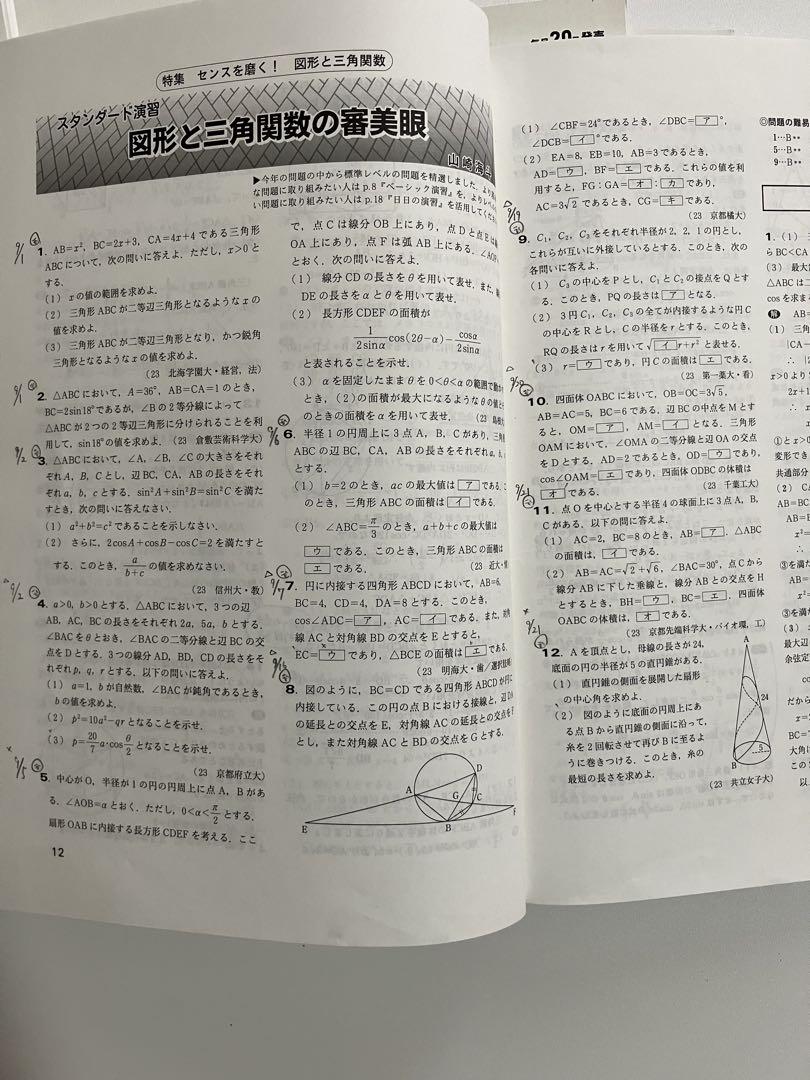 特集 センスを磨く! 図形と三角関数
スタンダード演習
図形と三角関数の審美眼
山崎海斗
▶今年の問題の中から標準レベルの問題を精選しました.
な問題に取り組みたい人は p.8『ベーシック演習』を,
い問題に取り組みたい人は p.18『日日の演習』を活用してくだ
1. AB=x², BC=2x+3, CA=4x+4 である三角形
ABC について, 次の問いに答えよ. ただし, x>0 と
する.
(1) x の値の範囲を求めよ.
(2) 三角形 ABC が二等辺三角形となるような x の
値を求めよ.
(3) 三角形 ABC が二等辺三角形となり, かつ鋭角
三角形となるような x の値を求めよ.
(23 北海学園大・経営, 法)
2. △ABC において, A=36°, AB=CA=1 のとき,
BC=2sin18° であるが, ∠B の2等分線によって
△ABC が2つの2等辺三角形に分けられることを利
用して, sin18° の値を求めよ. (23 倉敷芸術科学大)
3. △ABC において, ∠A, ∠B, ∠C の大きさをそれ
ぞれ A, B, C とし, 辺 BC, CA, AB の長さをそれ
ぞれ a, b, c とする. sin²A+sin²B=sin²C を満た
すとき, 次の問いに答えなさい.
(1) a²+b²=c² であることを示しなさい.
(2) さらに, 2cosA+cosB−cosC=2 を満たすと
する. このとき, a/(b+c) の値を求めなさい.
(23 信州大・教)
4. a>0, b>0 とする. △ABC において, 3つの辺
AB, AC, BC の長さをそれぞれ 2a, 5a, b とする.
∠BAC を θ とおき, ∠BAC の二等分線と辺 BC の交
点を D とする. 3つの線分 AD, BD, CD の長さをそ
れぞれ p, q, r とする. 以下の問いに答えよ.
(1) a=1, b が自然数, ∠BAC が鈍角であるとき,
b の値を求めよ.
(2) p²=10a²−qr となることを示せ.
(3) p=20/7 a・cos θ/2 となることを示せ.
(23 京都府立大)
5. 中心が O, 半径が1の円の円周上に点 A, B があ
る. ∠AOB=α とおく. ただし, 0<α<π/2 とする.
扇形 OAB に内接する長方形 CDEF を考える. ここ
12
で, 点 C は線分 OB 上にあり, 点 D と点 E は
OA 上にあり, 点 F は弧 AB 上にある. ∠AOF
とおく, 次の問いに答えよ.
(1) 線分 CD の長さを θ を用いて表せ. また,
DE の長さを α と θ を用いて表せ.
(2) 長方形 CDEF の面積が
1/(2sinα) cos(2θ−α)−cosα/(2sinα)
と表されることを示せ.
(3) α を固定したまま θ を 0<θ<α の範囲で動か
とき, (2)の面積が最大になるような θ の値と
のときの面積を α を用いて表せ.
6. 半径1の円周上に3点 A, B, C があり, 三角
ABC の辺 BC, CA, AB の長さをそれぞれ a, b,
とする.
(1) b=2 のとき, ac の最大値は ア である.
のとき, 三角形 ABC の面積は イ である.
(2) ∠ABC=π/3 のとき, a+b+c の最大値は
ウ である. このとき, 三角形 ABC の面積は
エ である.
(23 近大・
7. 円に内接する四角形 ABCD において, AB=6,
BC=4, CD=4, DA=8 とする. このとき,
cos∠ADC= ア , AC= イ である. また, 対角
線 AC と対角線 BD の交点を E とすると,
EC= ウ であり, △BCE の面積は エ である.
(23 明海大・歯/
8. 図のように, BC=CD である四角形 ABCD が円に
内接している. この円の点 B における接線と, 辺 D
の延長との交点を E, 対角線 AC の延長との交点を F
とし, また対角線 AC と BD の交点を G とする.
D
A
G
C
E
B
(1) ∠CBF=24° であるとき, ∠DBC= ア °,
∠DCB= イ ° である.
(2) EA=8, EB=10, AB=3 であるとき,
AD= ウ , BF= エ である. これらの値を利
用すると, FG:GA= オ : カ であり,
AC=3√2 であるとき, CG= キ である.
(23 京都橘大)
9. C₁, C₂, C₃ をそれぞれ半径が 2, 2, 1 の円とし,
これらが互いに外接しているとする. このとき, 次の
各問いに答えよ.
(1) C₃ の中心を P とし, C₁ と C₂ の接点を Q とす
る. このとき, PQ の長さは ア となる.
(2) 3円 C₁, C₂, C₃ の全てが内接するような円 C
の中心を R とし, C の半径を r とする. このとき,
RQ の長さは r を用いて √( イ r+r²) と表せる.
(3) r= ウ であり, 円 C の面積は エ である.
(23 第一薬大・看)
10. 四面体 OABC において, OB=OC=3√5,
AB=AC=5, BC=6 である. 辺 BC の中点を M とす
ると, OM= ア , AM= イ となる. 三角形
OAM において, ∠OMA の二等分線と辺 OA の交点
を D とする. AD=2 であるとき, OD= ウ であり,
cos∠OAM= エ であり, 四面体 ODBC の体積は
オ である.
(23 千葉工大)
11. 点 O を中心とする半径4の球面上に3点 A, B,
C がある. 以下の問に答えよ.
(1) AC=2, BC=8 のとき, AB= ア . △ABC
の面積は, イ である.
(2) AB=AC=√2+√6, ∠BAC=30°, 点 C から
線分 AB に下した垂線と, 線分 AB との交点を H
とするとき, BH= ウ , BC= エ . 四面体
OABC の体積は, オ である.
(23 京都先端科学大・バイオ環, 工)
12. A を頂点とし, 母線の長さが 24,
底面の円の半径が5の直円錐がある.
(1) 直円錐の側面を展開した扇形
の中心角を求めよ.
(2) 図のように底面の円周上にあ
る点 B から直円錐の側面に沿って,
糸を2回転させて再び B に至るよ
うに巻きつける. このとき, 糸の
最短の長さを求めよ.
(23 共立女子大)
A
24
5
B
20
発売
◎問題の難易
1…B**
5…B**
9…B**